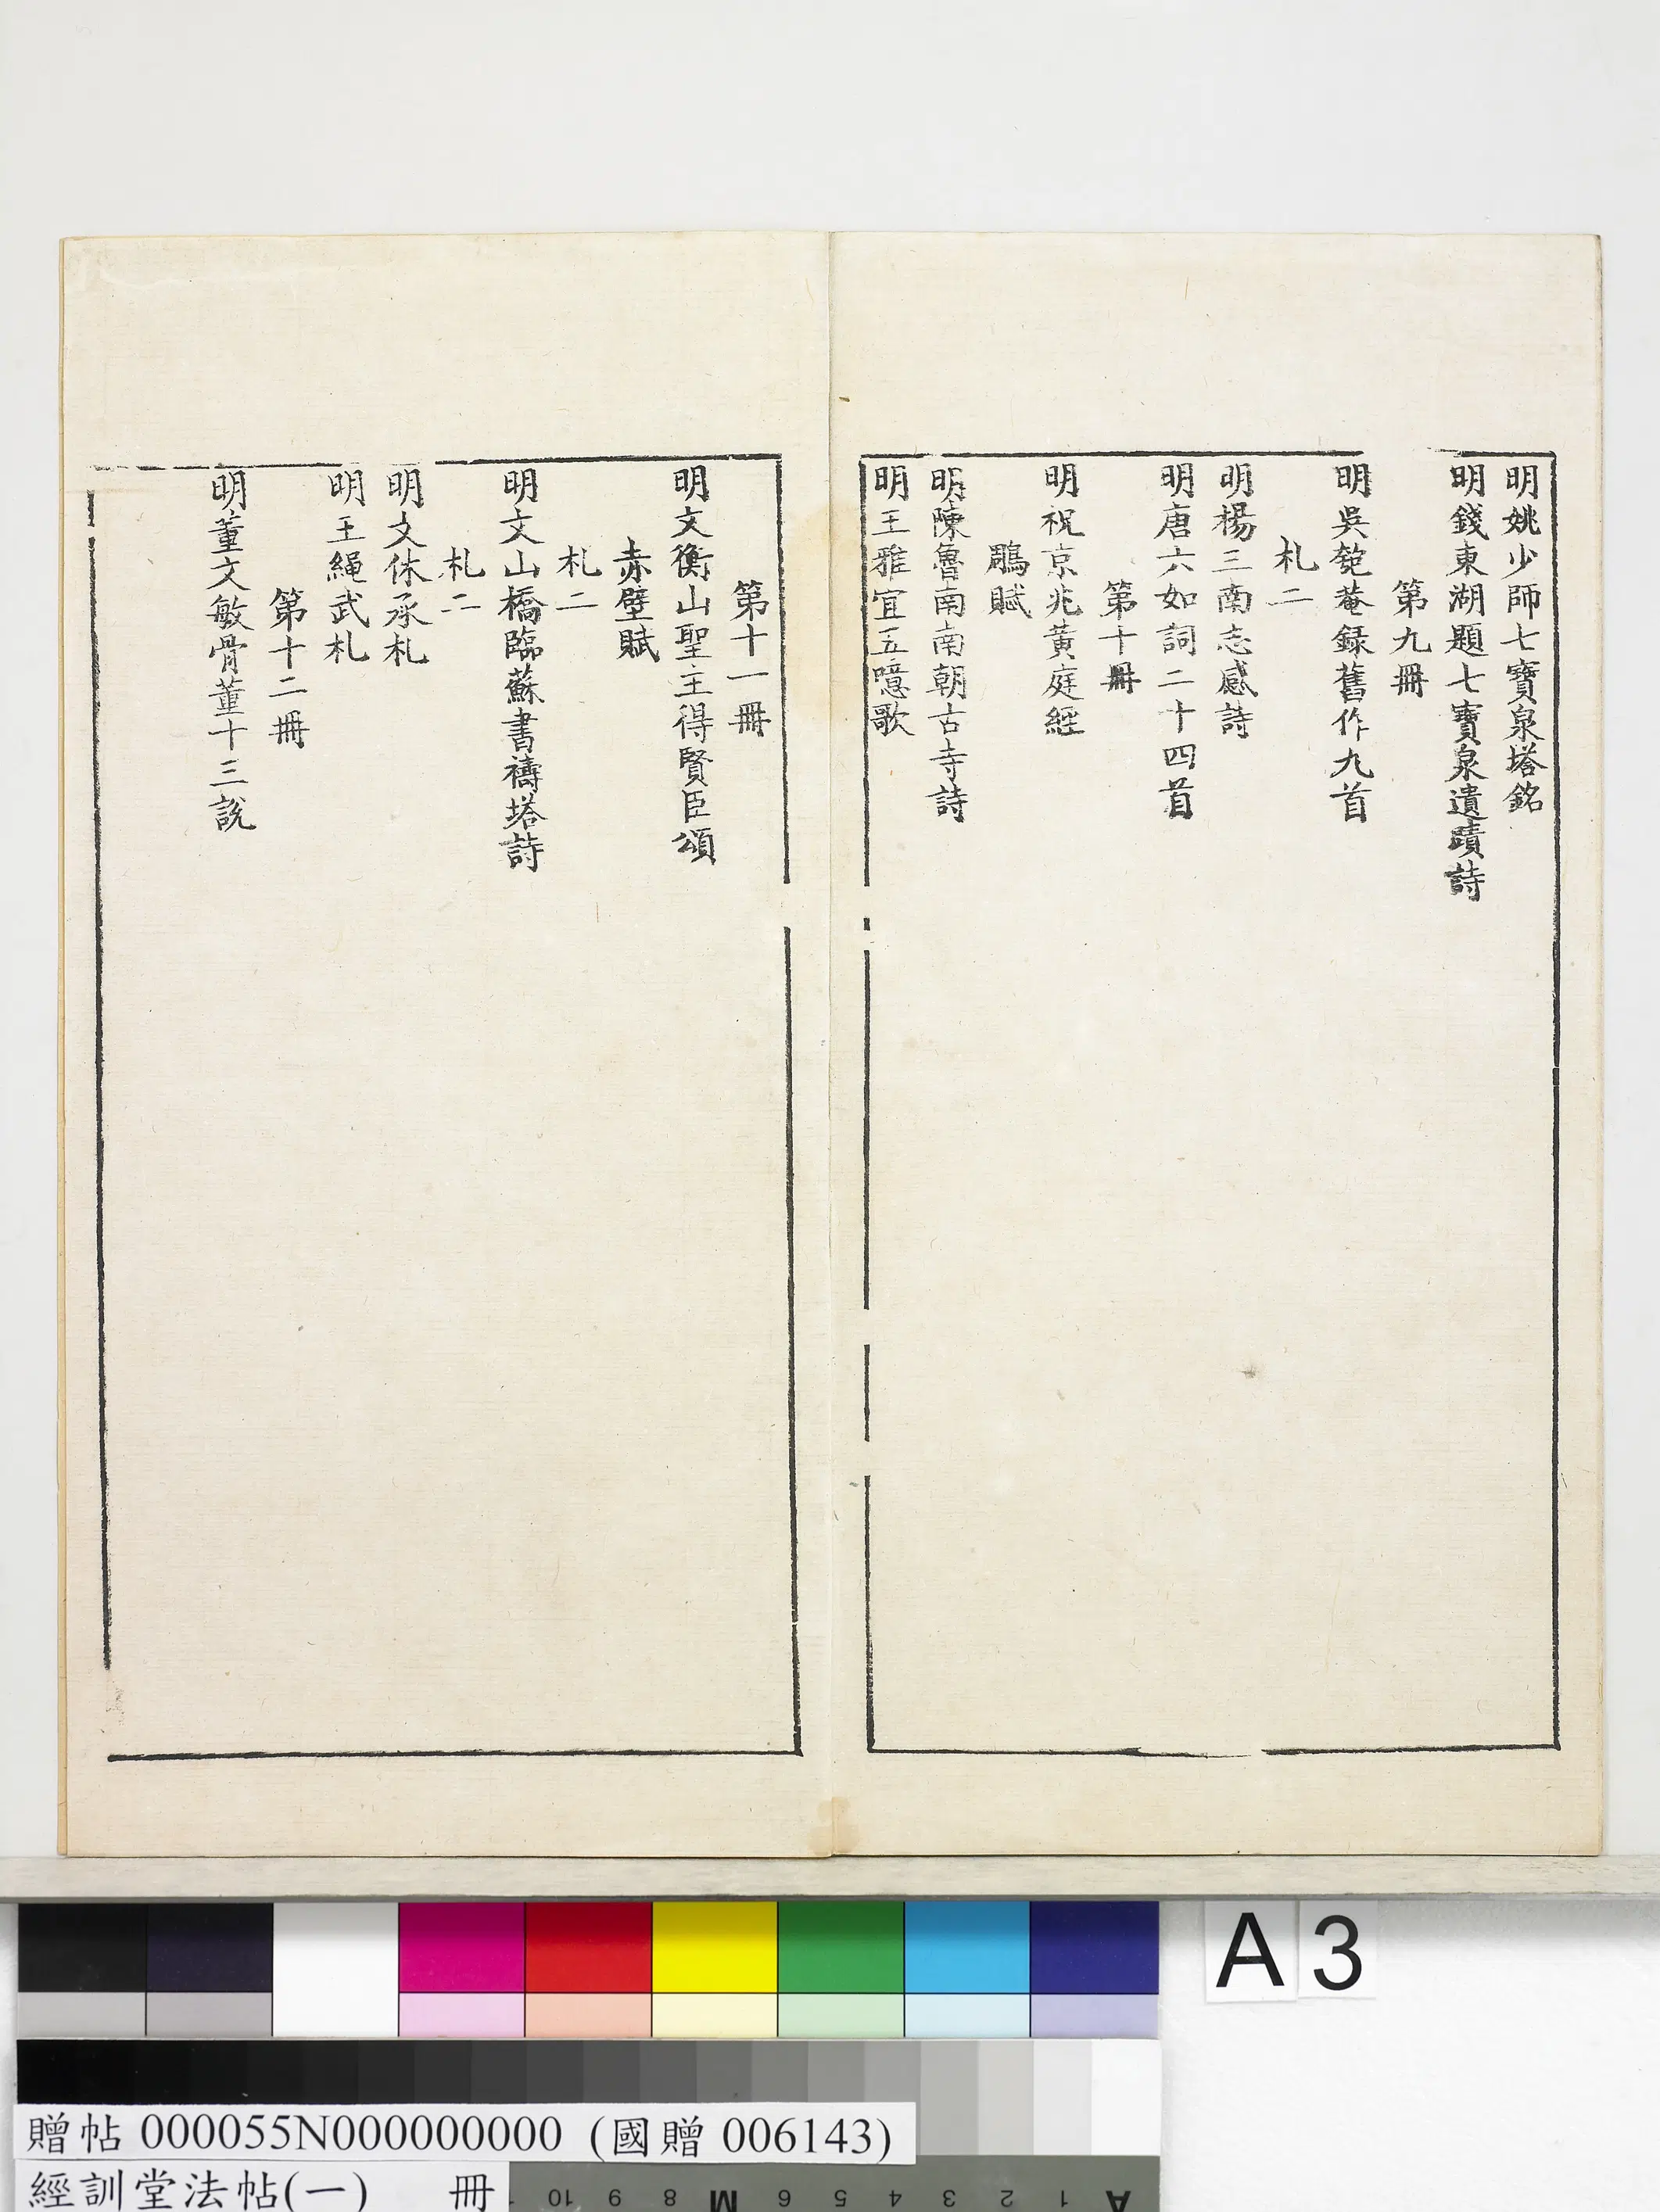 明姚少師七寶泉塔銘
明錢東湖題七寶泉遺蹟詩
第九冊
明吳匏菴録舊作九首
札二
明楊三南志感詩
明唐六如詞二十四首
第十冊
明祝京兆黃庭經
鵰賦
明陳魯南南朝古寺詩
明王雅宜五噫歌
第十一冊
明文衡山聖主得賢臣頌
赤壁賦
札二
明文山橋臨蘇書禱塔詩
札二
明文休承札
明王繩武札
第十二冊
明董文敏骨董十三說
A 3
贈帖 000055N000000000 (國贈 006143)
經訓堂法帖(一) 冊
10 9 8 M 6 5 4 3 2 1 A